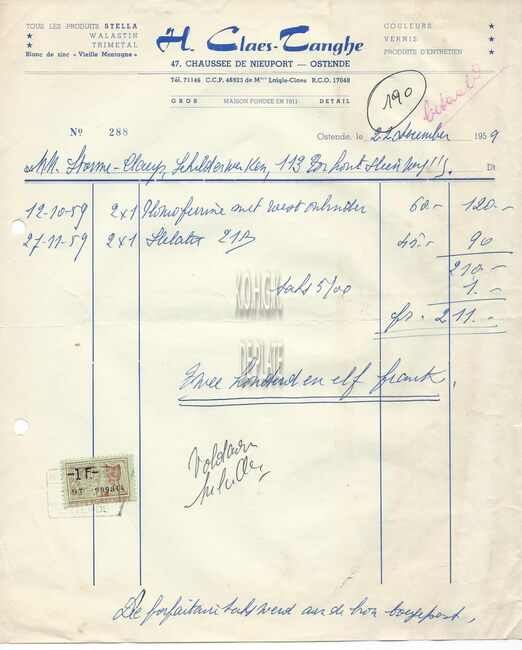 TOUS LES PRODUITS STELLA
★ WALASTIN
★ TRIMETAL
Blanc de zinc « Vieille Montagne »
H. Claes-Tanghe
COULEURS ★
VERNIS ★
PRODUITS D'ENTRETIEN ★
47, CHAUSSEE DE NIEUPORT — OSTENDE
Tél. 71146 C.C.P. 46923 de Mme Laigle-Claes R.C.O. 17048
GROS MAISON FONDÉE EN 1911 DETAIL
190
betaald
No 288
Ostende, le 22 december 1959
Storme-Claeys, Schilderwerken, 113 Torhoutsteenweg Dt
12-10-59 2x1 Homoferrine met 60.- 120.-
27-11-59 2x1 Stelatex 21B 45.- 90
210.-
taks 5/00 1.-
fr. 211.-
KOHGK
DE PLATE
Twee honderd en elf frank.
Voldaan
-1F-
9T 999844
De forfaitaire taks werd aan de bron toegepast.